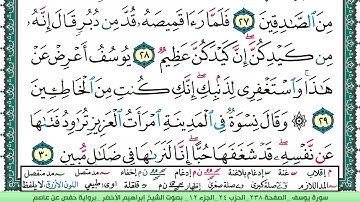 مِنَ ٱلصَّـٰدِقِينَ ٢٧ فَلَمَّا رَءَا قَمِيصَهُۥ قُدَّ مِن دُبُرٍ قَالَ إِنَّهُۥ
مِن كَيْدِكُنَّ ۖ إِنَّ كَيْدَكُنَّ عَظِيمٌ ٢٨ يُوسُفُ أَعْرِضْ عَنْ
هَـٰذَا ۚ وَٱسْتَغْفِرِى لِذَنۢبِكِ ۖ إِنَّكِ كُنتِ مِنَ ٱلْخَاطِـِٔينَ
٢٩ ۞ وَقَالَ نِسْوَةٌ فِى ٱلْمَدِينَةِ ٱمْرَأَتُ ٱلْعَزِيزِ تُرَٰوِدُ فَتَىٰهَا
عَن نَّفْسِهِۦ ۖ قَدْ شَغَفَهَا حُبًّا ۖ إِنَّا لَنَرَىٰهَا فِى ضَلَـٰلٍ مُّبِينٍ ٣٠
سورة يوسف الصفحة ٢٣٨ الجزء ٢٤ الجزء ١٢ بصوت الشيخ إبراهيم الأخضر برواية حفص عن عاصم